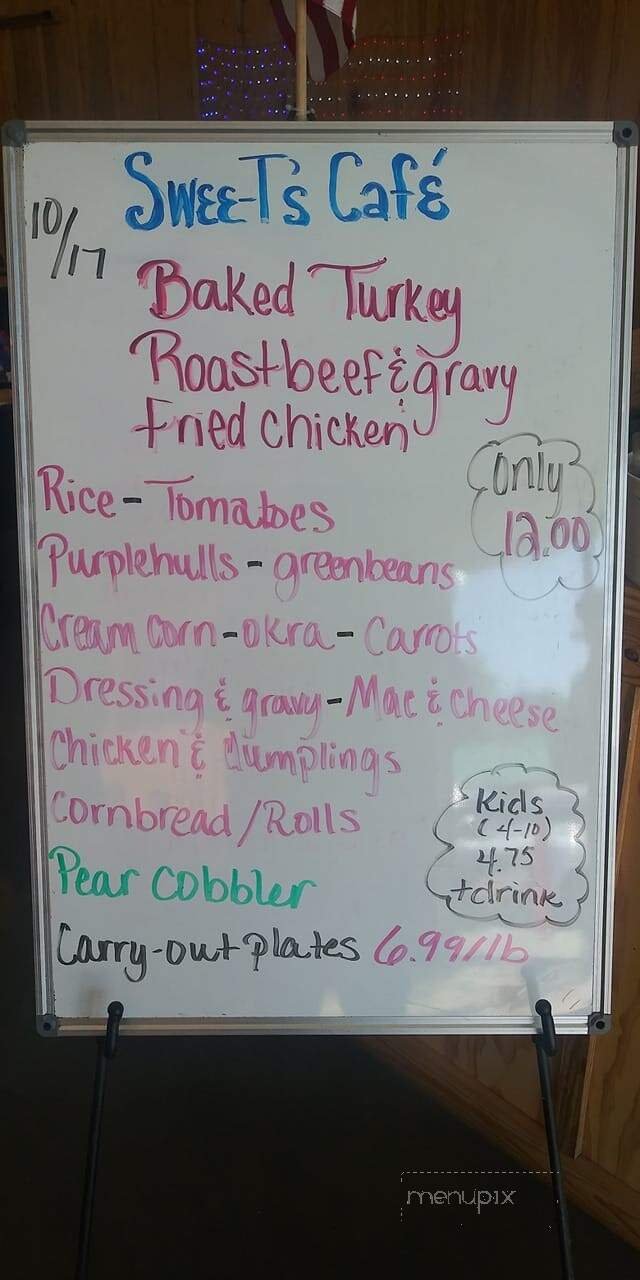 Swee-T's Café
10/17
Baked Turkey
Roastbeef & gravy
Fried Chicken
Rice - Tomatoes
only
12.00
Purplehulls - greenbeans
Cream Corn - okra - Carrots
Dressing & gravy - Mac & cheese
Chicken & dumplings
Cornbread / Rolls
Kids
(4-10)
4.75
+drink
Pear cobbler
Carry-out plates 6.99/lb
menupix